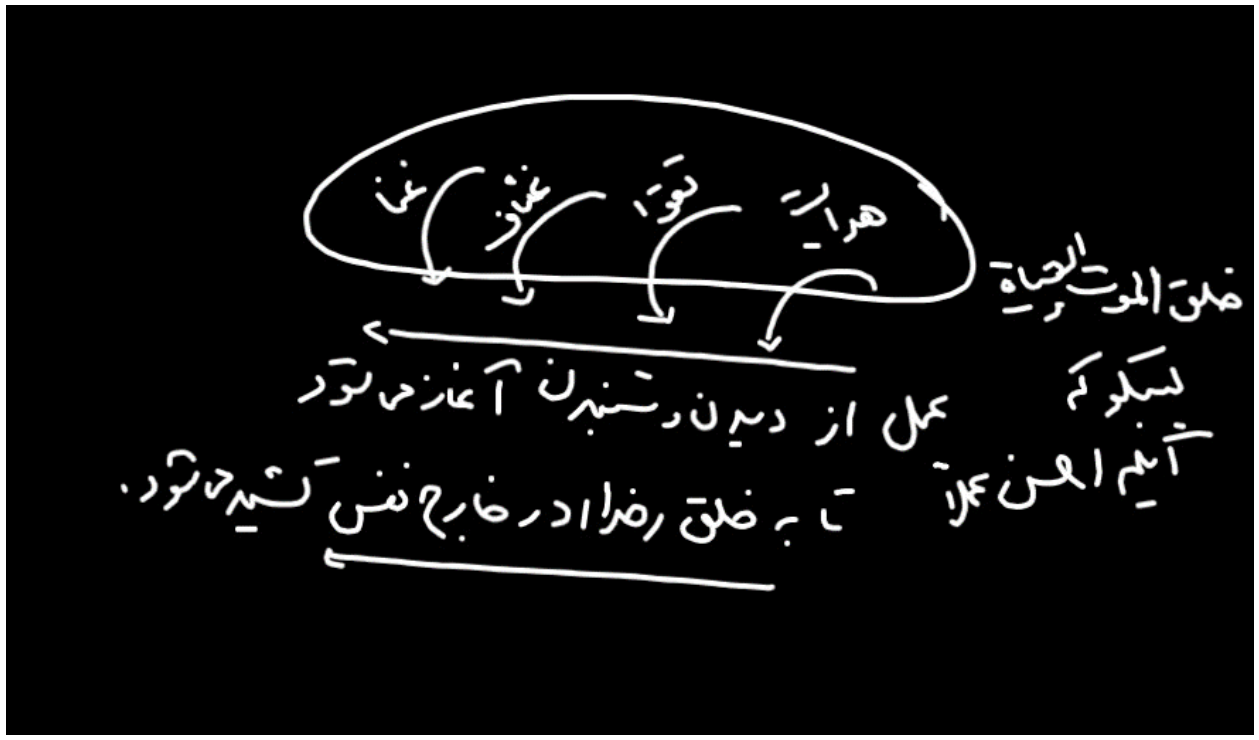 هدایت تقوا عفاف غنا
خلق الموت و الحیاة
لیبلوکم
أیکم احسن عملاً
عمل از دیدن و شنیدن آغاز می شود
تا به خلق رخداد در خارج نفس کشیده می شود.